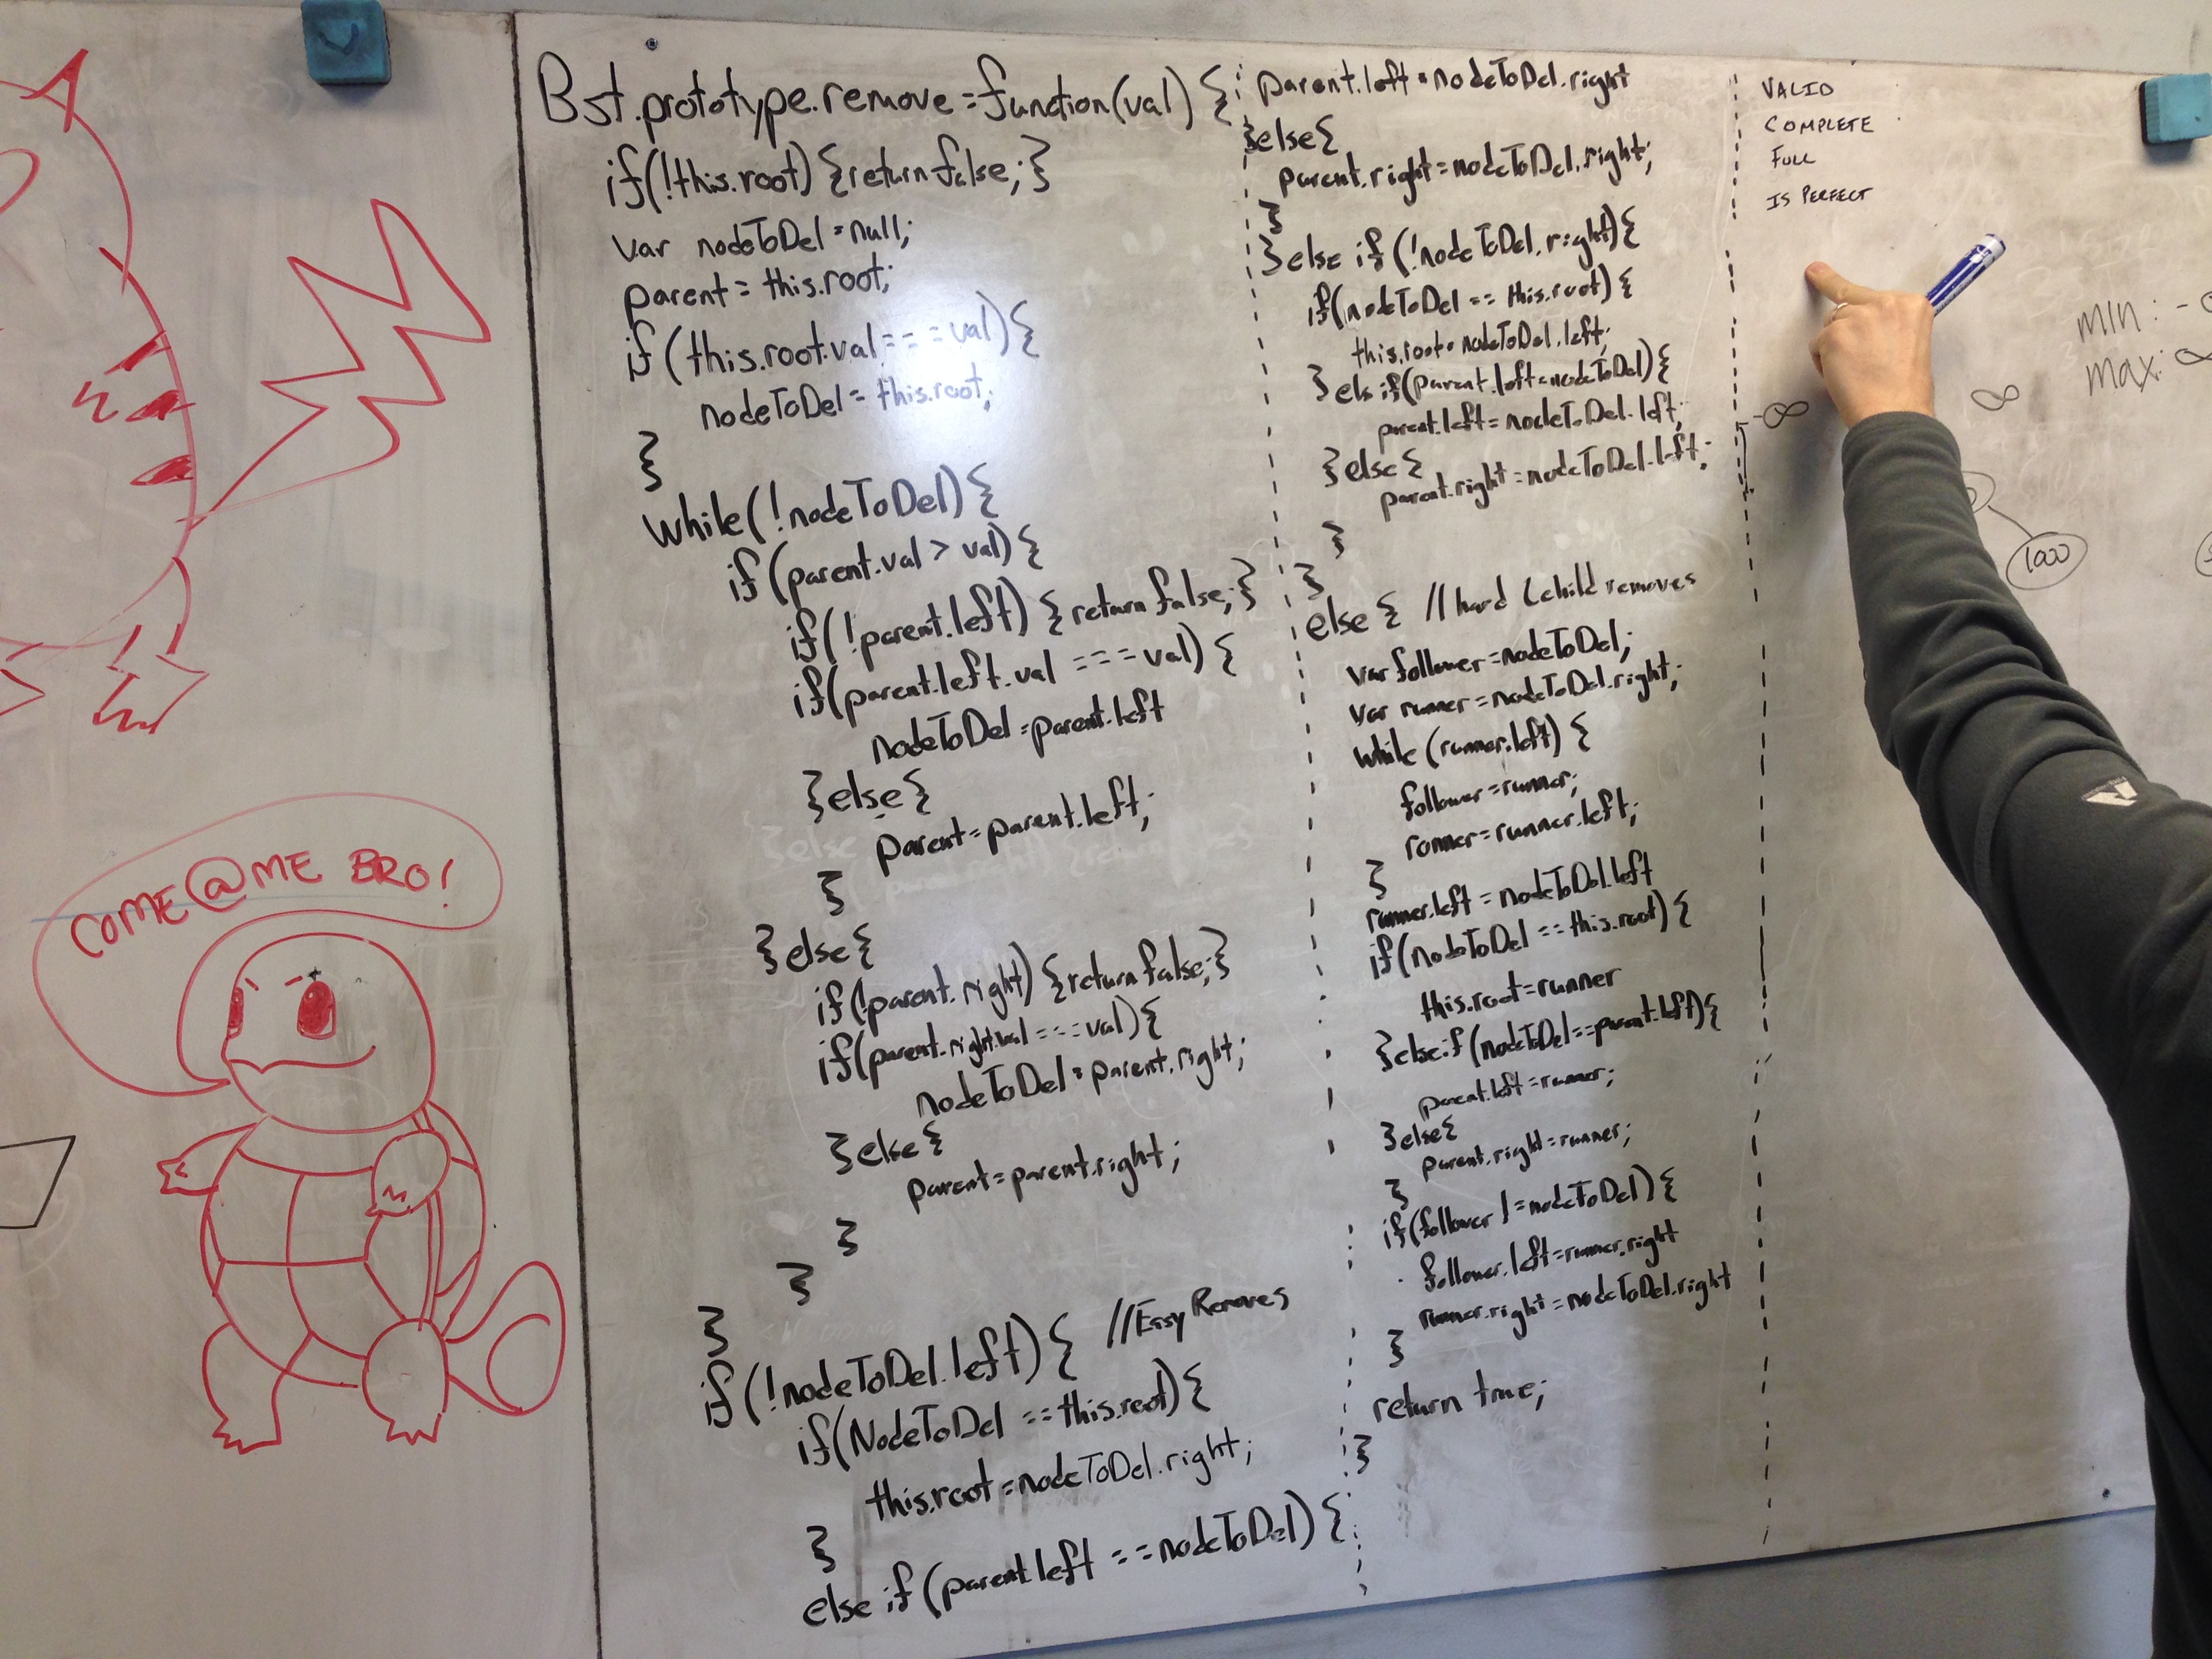 COME@ME BRO!
Bst.prototype.remove=function(val) {
if(!this.root) {return false;}
var nodeToDel=null;
parent = this.root;
if (this.root.val===val){
nodeToDel=this.root;
}
while(!nodeToDel){
if(parent.val > val){
if(!parent.left) {return false;}
if(parent.left.val ===val) {
nodeToDel=parent.left
}else{
parent=parent.left;
}
}else{
if(!parent.right) {return false;}
if(parent.right.val===val){
nodeToDel=parent.right;
}else{
parent=parent.right;
}
}
}
if(!nodeToDel.left){ //Easy Removes
if(NodeToDel ==this.root){
this.root=nodeToDel.right;
}
else if(parent.left ==nodeToDel){
parent.left=nodeToDel.right
}else{
parent.right=nodeToDel.right;
}
}else if(!nodeToDel.right){
if(nodeToDel == this.root){
this.root=nodeToDel.left;
}els if(parent.left=nodeToDel){
parent.left=nodeToDel.left;
}else{
parent.right=nodeToDel.left;
}
}
else{ //hard child removes
var follower=nodeToDel;
var runner=nodeToDel.right;
while(runner.left) {
follower=runner;
runner=runner.left;
}
runner.left = nodeToDel.left
if(nodeToDel ==this.root){
this.root=runner
}else if(nodeToDel==parent.left){
parent.left=runner;
}else{
parent.right=runner;
}
if(follower !=nodeToDel){
follower.left=runner.right
runner.right=nodeToDel.right
}
return true;
}
VALID
COMPLETE
FULL
IS PERFECT
min: -
max: ∞
-∞
∞
1000